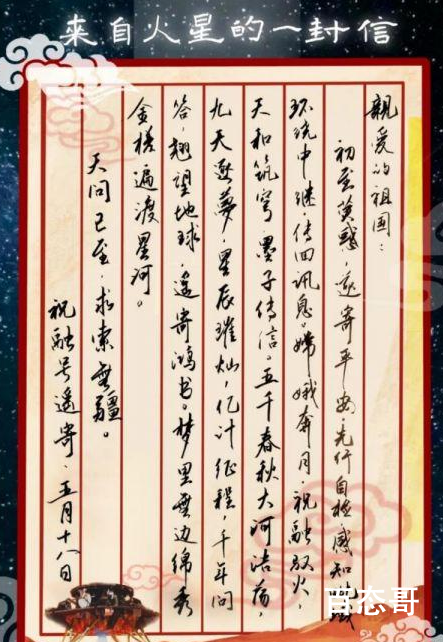 来自火星的一封信
親爱的祖国：
初至荧惑，遥寄平安。先行自检感知
环绕中继，传回讯息。嫦娥奔月，祝融驭火，
天和筑穹，墨子传信。五千春秋大河浩荡，
九天逐夢，星辰璀灿，亿计征程，千年问
答，翘望地球，遥寄鸿书。梦里無边绵秀
金槎遍渡星河。
天问已至，求索無疆。
祝融号遥寄，五月十八日
百态哥